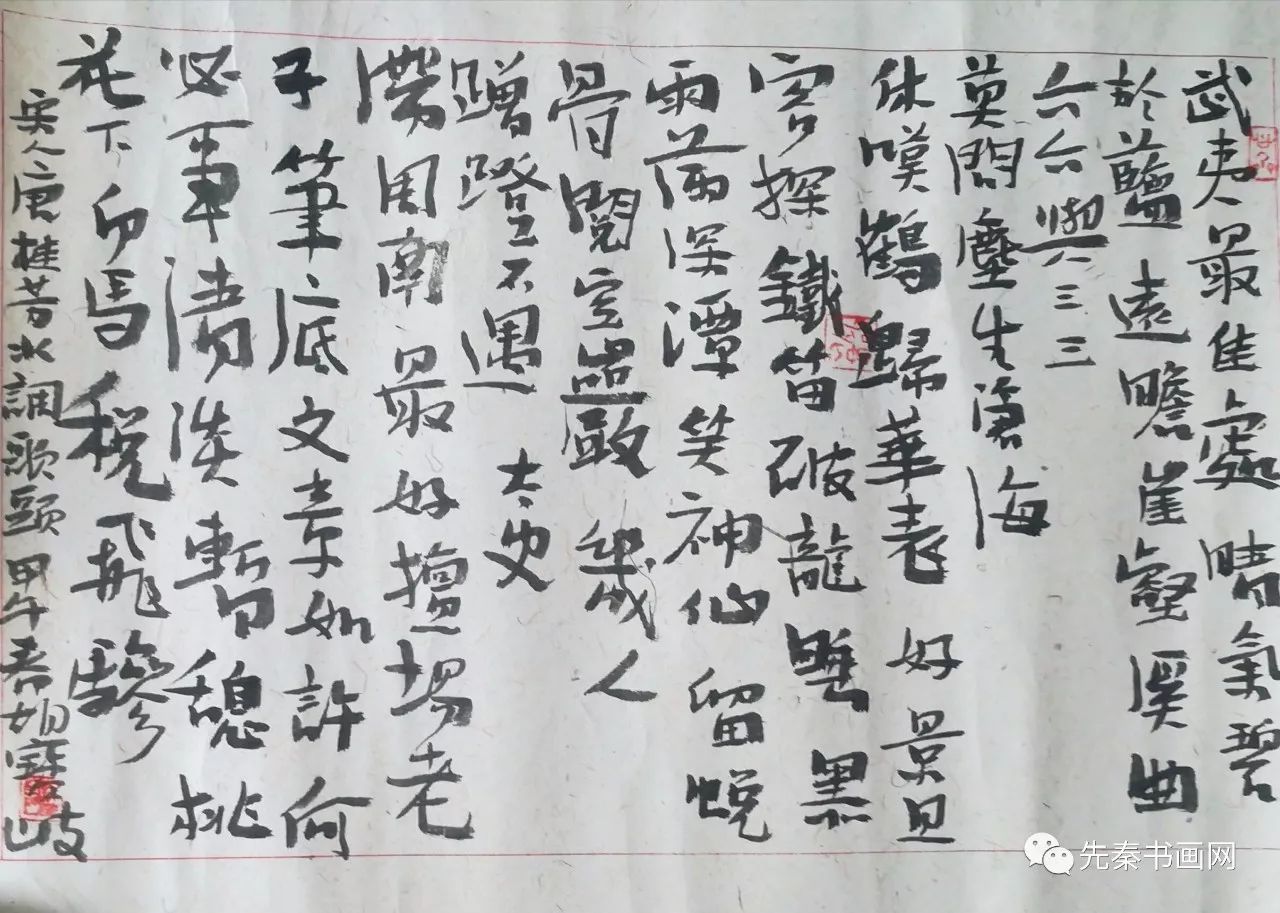 武夷最佳處晴氣碧
於藍遠瞻崖壑溪曲
六六與三三
莫問塵生滄海
休嘆鶴歸華表好景且
容探鐵笛破龍睡黑
雨落深潭笑神仙留蛻
骨閱空巖幾人
蹭蹬不遇太史
滯周南最好擅場老
子筆底文章如許何
必事清淡暫憩桃
花下卸馬稅飛驂
人唐桂芳水調歌頭甲午春寶岐
先秦书画网